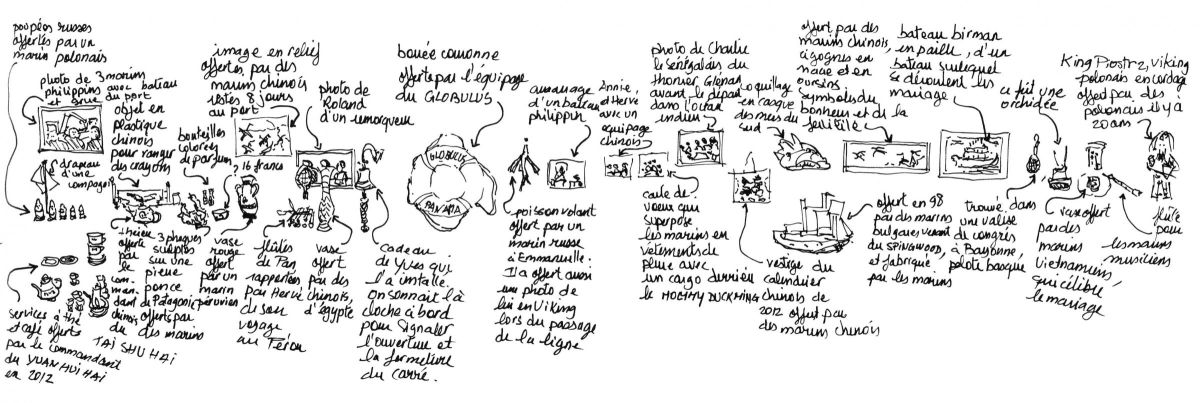 poupées russes
offertes par un
marin polonais
photo de 3 marins
philippins avec bateau
et grue du port
drapeau
d'une
compagnie
objet en
plastique
chinois
pour ranger
des crayons
image en relief
offerte par des
marins chinois
restés 8 jours
au port
bouteilles
colorées
de parfum
16 francs
photo de
Roland
d'un remorqueur
bouée couronne
offerte par l'équipage
du GLOBULUS
GLOBULUS
PANAMA
amarrage
d'un bateau
philippin
Annie,
et Hervé
avec un
équipage
chinois
photo de Charlie
le sénégalais du
thonier Glenan
avant le départ
dans l'océan
indien
coquillage
en casque
des mers du
sud
offert par des
marins chinois,
cigognes en
nacre et en
oursins
symboles du
bonheur et de la
félicité
bateau birman
en paille, d'un
bateau sur lequel
se déroulent les
mariages
ce fut une
orchidée
King Piostrz, Viking
polonais en cordage
offert par des
polonais il y a
20 ans
services à thé
et café offerts
par le commandant
du YUAN HUI HAI
en 2012
théière
offerte
par
le
com-
man-
dant du
chinois
TAI SHU HAI
3 phoques
sculptés
sur une
pierre
ponce
de Patagonie
offerts par
des marins
vase
rouge
offert
par un
marin
péruvien
flûtes
de Pan
rapportées
par Hervé
de son
voyage
au Pérou
vase
offert
par des
chinois,
d'égypte
cadeau
de Yves qui
l'a installé.
on sonnait la
cloche à bord
pour signaler
l'ouverture et
la fermeture
du carré.
poisson volant
offert par un
marin russe
à Emmanuelle.
Il a offert aussi
une photo de
lui en Viking
lors du passage
de la ligne
carte de
voeux qui
superpose
les marins en
vêtements de
pluie avec
un cargo derrière
le HOCHMY DUCKMING
vestige du
calendrier
chinois de
2012 offert par
des marins chinois
offert en 98
par des marins
bulgares venant
du SPINGWOOD,
et fabriqué
par les marins
trouvée dans
une valise
de congrès
à Bayonne,
pelote basque
vase offert
par des
marins
vietnamiens,
qui célèbre
le mariage
flûte
pour
les marins
musiciens